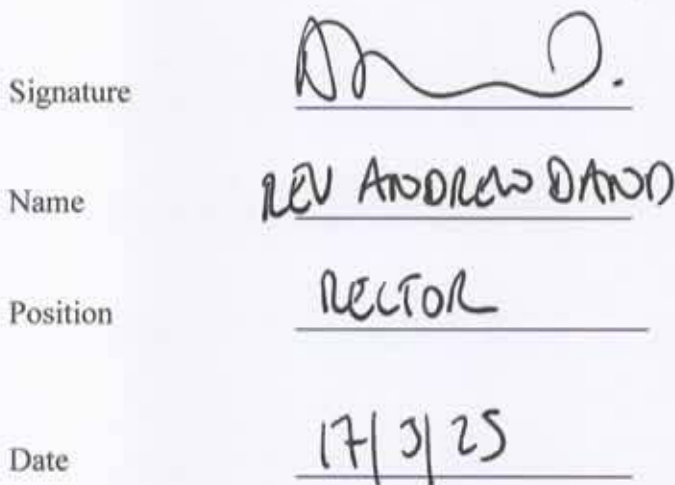 Signature
Name REV ANDREW DAND
Position RECTOR
Date 17/3/25